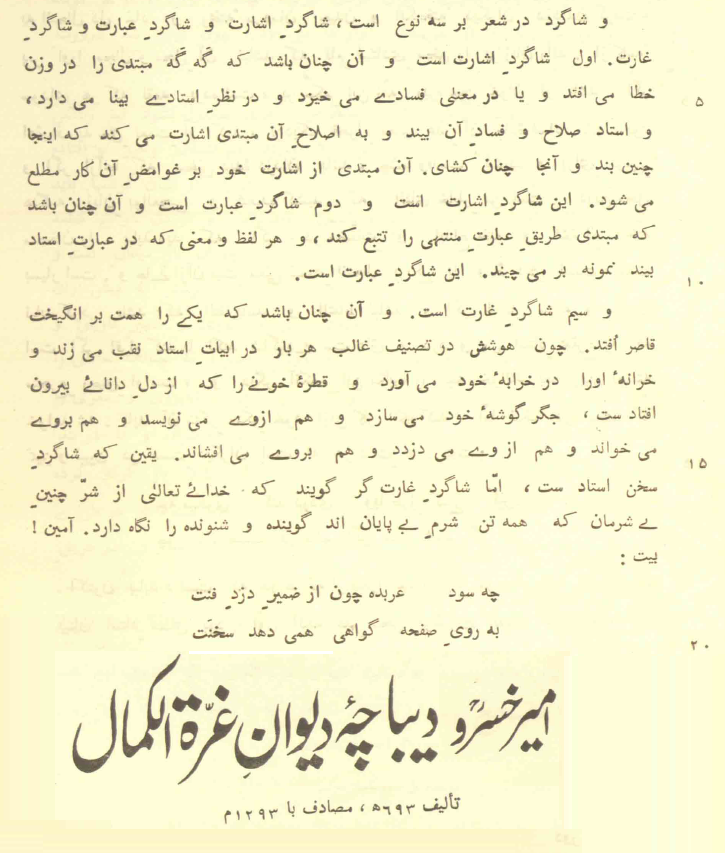 و شاگرد در شعر بر سه نوع است ، شاگردِ اشارت و شاگردِ عبارت و شاگردِ
غارت. اول شاگردِ اشارت است و آن چنان باشد که گه گه مبتدی را در وزن
خطا می افتد و یا در معنٰی فسادے می خیزد و در نظرِ استادے بینا می دارد ، ۵
و استاد صلاح و فسادِ آن بیند و به اصلاحِ آن مبتدی اشارت می کند که اینجا
چنین بند و آنجا چنان کشای. آن مبتدی از اشارت خود بر غوامضِ آن کار مطلع
می شود. این شاگردِ اشارت است و دوم شاگردِ عبارت است و آن چنان باشد
که مبتدی طریقِ عبارتِ منتهی را تتبع کند ، و هر لفظ و معنی که در عبارتِ استاد
بیند نمونه بر می چیند. این شاگردِ عبارت است. ۱۰
و سیم شاگردِ غارت است. و آن چنان باشد که یکے را همت بر انگیخت
قاصر اُفتد. چون هوشش در تصنیف غالب هر بار در ابیاتِ استاد نقب می زند و
خرانهٔ اورا در خرابهٔ خود می آورد و قطرهٔ خونے را که از دلِ دانائے بیرون
افتاد ست ، جگر گوشهٔ خود می سازد و هم ازوے می نویسد و هم بروے
می خواند و هم از وے می دزدد و هم بروے می افشاند. یقین که شاگردِ ۱۵
سخن استاد ست ، امّا شاگردِ غارت گر گویند که خدائے تعالٰی از شرِّ چنین
بے شرمان که همه تن شرمِ بے پایان اند گوینده و شنونده را نگاه دارد. آمین !
بیت :
چه سود عربده چون از ضمیرِ دزدِ فنت
به رویِ صفحه گواهی همی دهد سخنَت ۲۰
امیر خسرو دیباچۂ دیوانِ غرّة الکمال
تألیف ۶۹۳ﻫ ، مصادف با ۱۲۹۳م